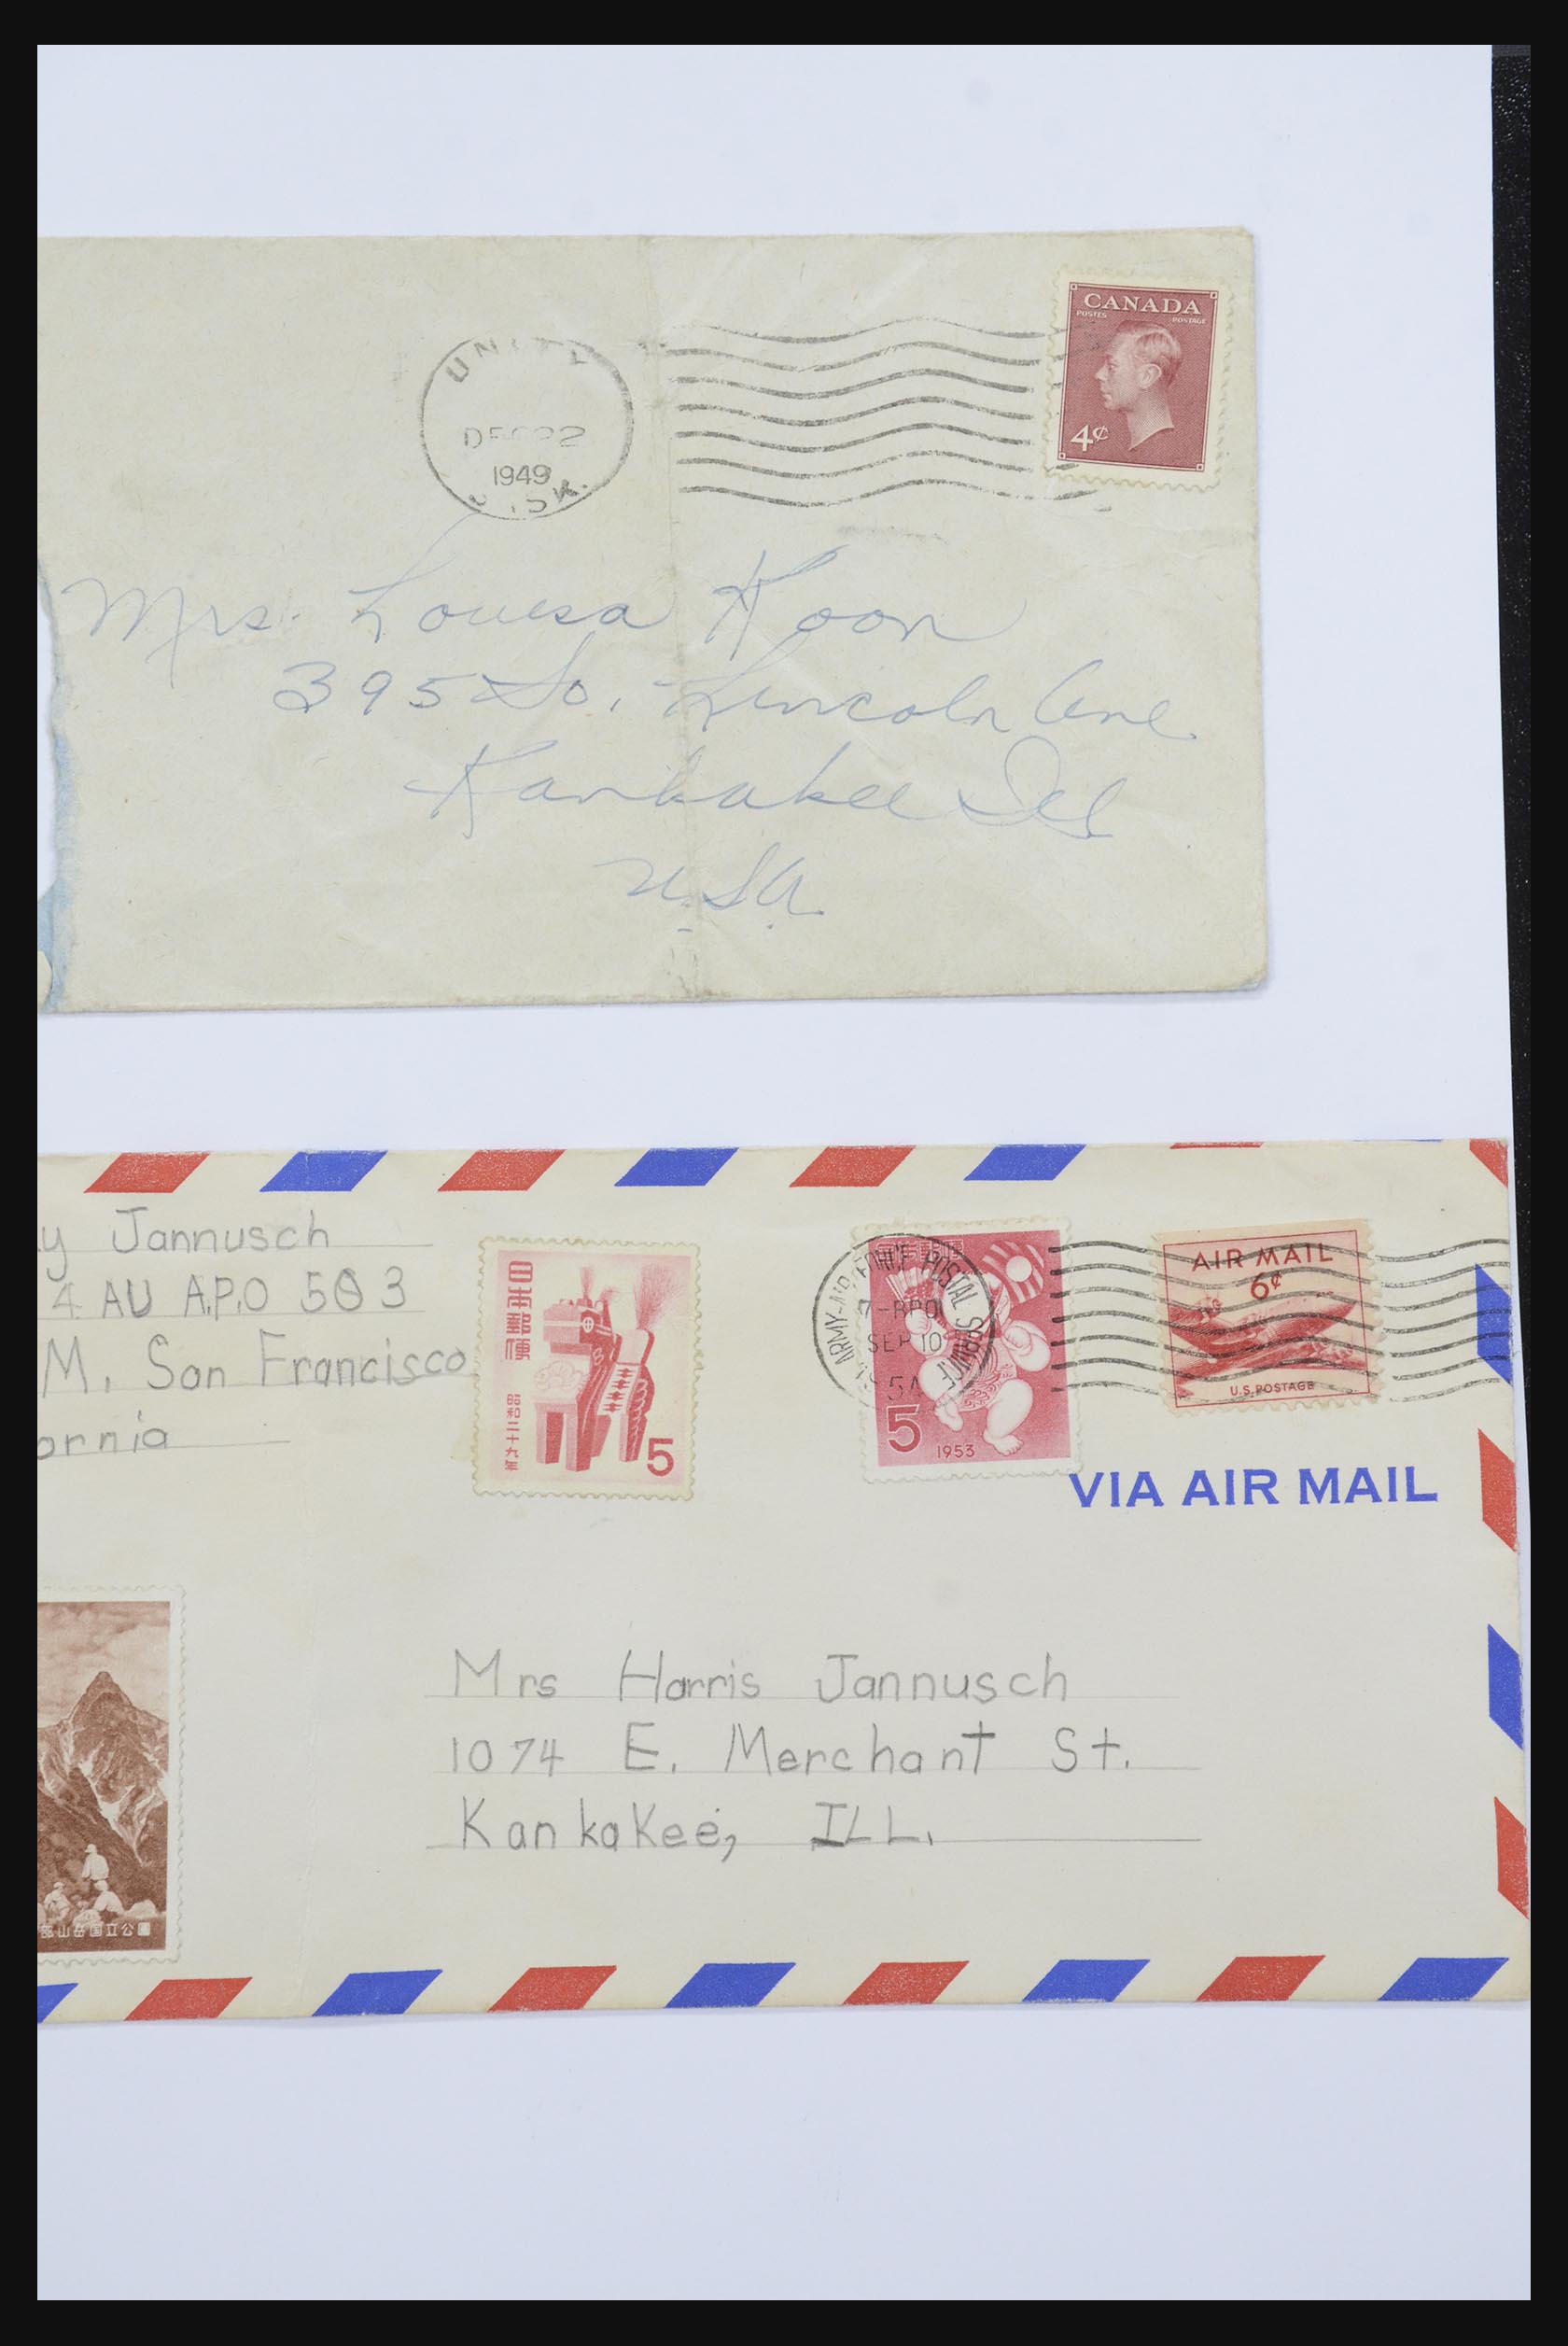 CANADA
POSTES POSTAGE
4¢
UNITY
DEC 22
1949
Mrs. Louisa Koon
395 So. Lincoln Ave
Kankakee Ill
U.S.A.
y Jannusch
4 AU A.P.O 503
M. San Francisco
ornia
日本郵便
昭和二十九年
5
ARMY-AIR FORCE POSTAL SERVICE
SEP 10
5
1953
AIR MAIL
6¢
U.S. POSTAGE
VIA AIR MAIL
部山岳国立公園
Mrs Harris Jannusch
1074 E. Merchant St.
Kankakee, ILL.